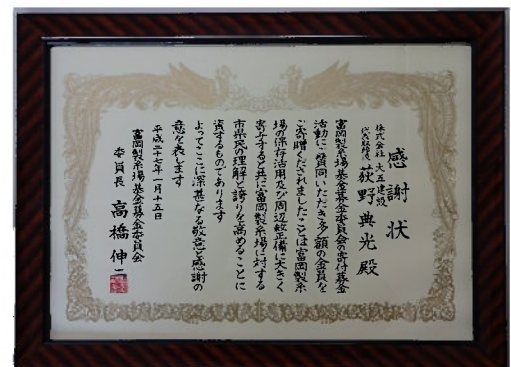 感謝状
株式会社 大五建設
代表取締役 荻野典光 殿
富岡製糸場基金募金委員会の寄付募金
活動にご賛同いただき多額の金員を
ご寄贈くだされましたことは富岡製糸
場の保存活用及び周辺整備に大きく
寄与すると共に富岡製糸場に対する
市県民の理解と誇りを高めることに
資するものであります
よってここに深甚なる敬意と感謝の
意を表します
平成二十七年一月十五日
富岡製糸場基金募金委員会
委員長 高橋伸二